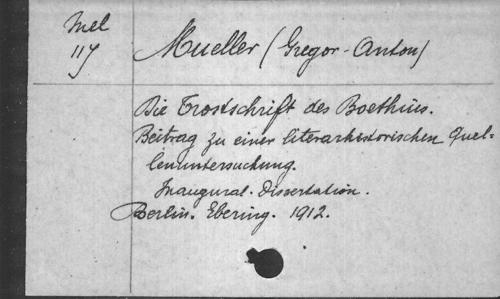 Mel
117
Mueller (Gregor-Anton)
Die Trostschrift des Boethius.
Beitrag zu einer literarhistorischen Quel-
lenuntersuchung.
Inaugural-Dissertation.
Berlin. Ebering. 1912.